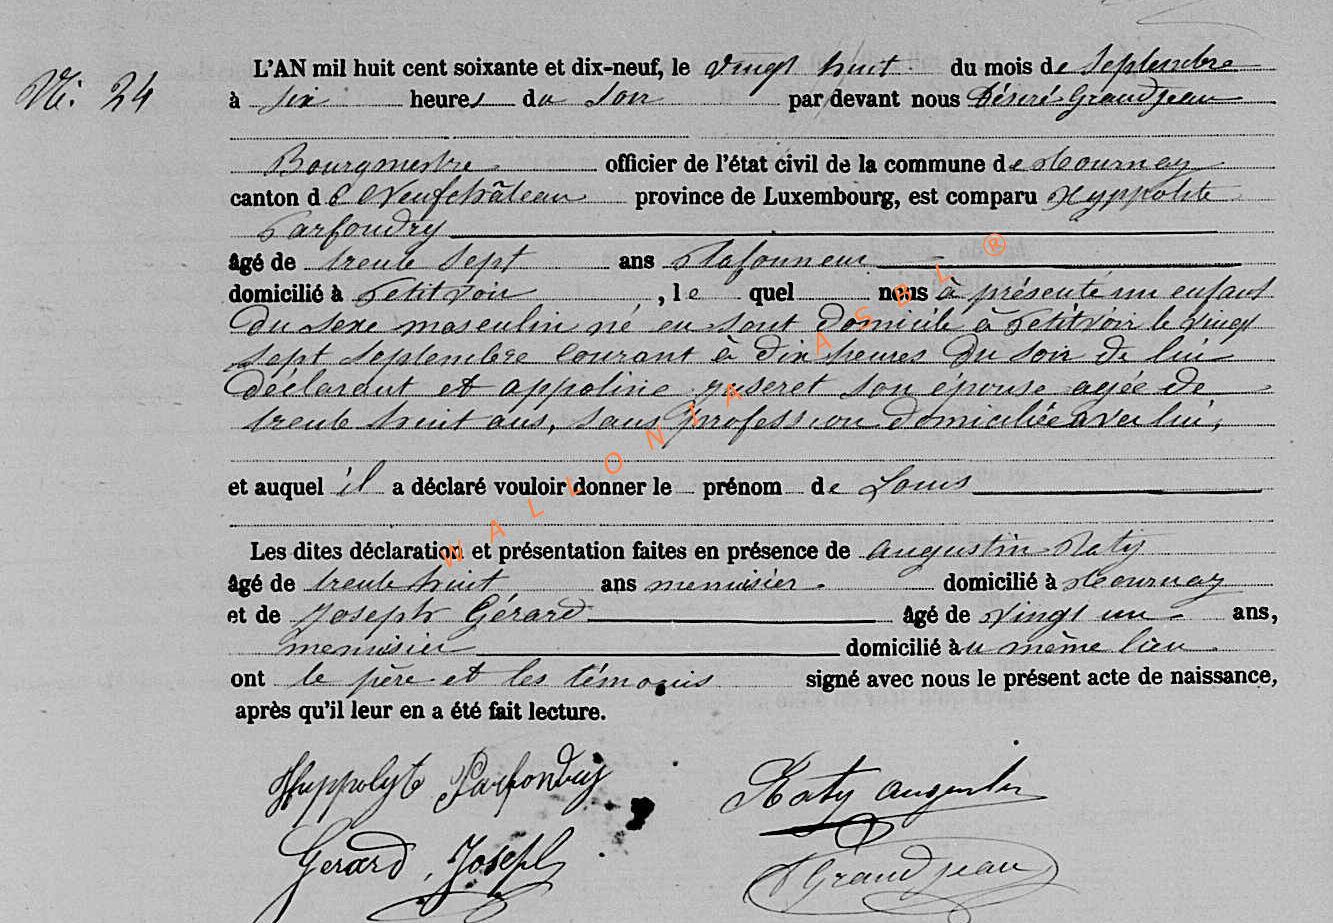 N: 24
L'AN mil huit cent soixante et dix-neuf, le vingt huit du mois de Septembre
à six heures du soir par devant nous Désiré Grandjean
Bourgmestre officier de l'état civil de la commune de Tournay
canton de Neufchâteau province de Luxembourg, est comparu Hyppolite
Parfondry
âgé de trente sept ans Plafonneur
domicilié à Petitvoir, le quel nous à présenté un enfant
du sexe masculin né en sont domicile à Petitvoir le vingt
sept septembre courant à dix heures du soir de lui
déclarant et appoline son épouse agée de
trente huit ans, sans profession domiciliée avec lui,
et auquel il a déclaré vouloir donner le prénom de Louis
Les dites déclaration et présentation faites en présence de augustin Naty
âgé de trente huit ans menuisier. domicilié à Tournay
et de Joseph Gérard âgé de vingt un ans,
menuisier domicilié àu même lieu.
ont le père et les témoins signé avec nous le présent acte de naissance,
après qu'il leur en a été fait lecture.
Hyppolyte Parfondry Naty augustin
Gerard, Joseph D Grandjean
WALLONIA ASBL ®